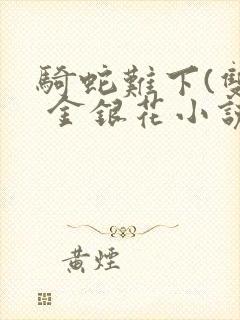 騎蛇難下(雙
金銀花小說
黃煙